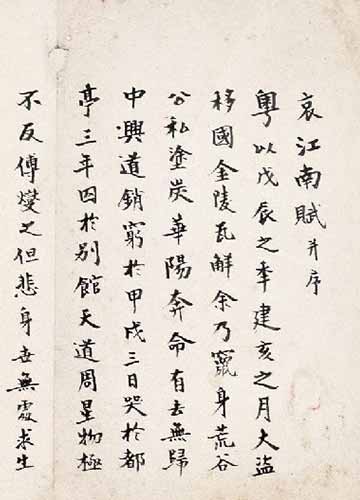 哀江南賦并序
粵以戊辰之年建亥之月大盜
移國金陵瓦解余乃竄身荒谷
公私塗炭華陽奔命有去無歸
中興道銷窮於甲戌三日哭於都
亭三年囚於別館天道周星物極
不反傅燮之但悲身世無處求生